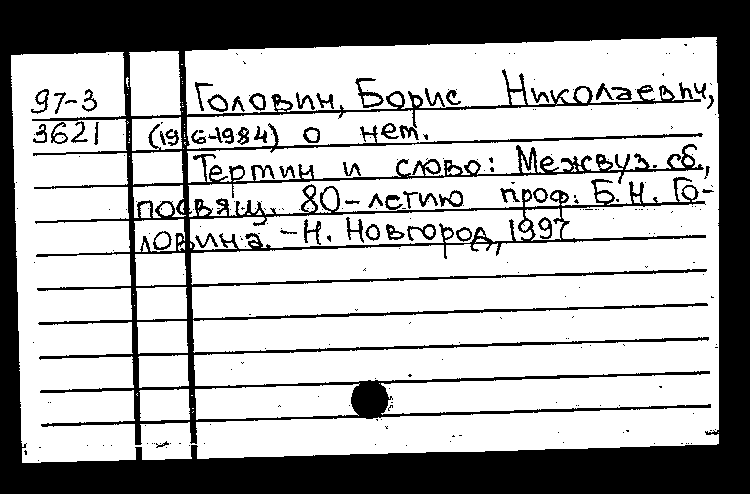 97-3 Головин, Борис Николаевич,
3621 (1916-1984) о нем.
Термин и слово: Межвуз. сб.,
посвящ. 80-летию проф. Б.Н. Го-
ловина. -Н. Новгород, 1997